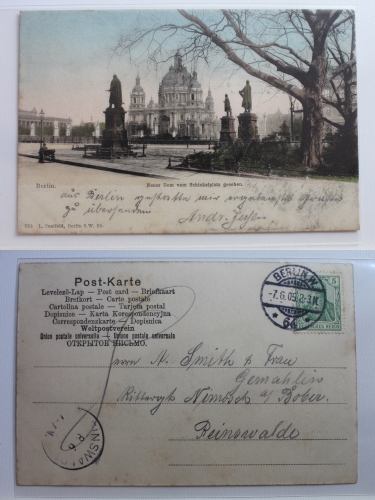 Berlin.
Neuer Dom vom Schinkelplatz gesehen.
aus Berlin gestatten wir ergebenst Grüsse
zu übersenden
Andr.
Berlin S W. 68.
Post-Karte
Levelező-Lap — Post card — Briefkaart
Brefkort — Carte postale
Cartolina postale — Tarjeta postal
Dopisnice — Karta Korespondencyjna
Correspondenzkarte — Dopisnica
Weltpostverein
Union postale universelle — Unione postale universale
ОТКРЫТОЕ ПИСЬМО.
BERLIN
-7.6.05.2-3N.
* 64
5
Herrn A. Smith & Frau
Gemahlin
Rittergut Niemitsch a/Bober.
Reinswalde